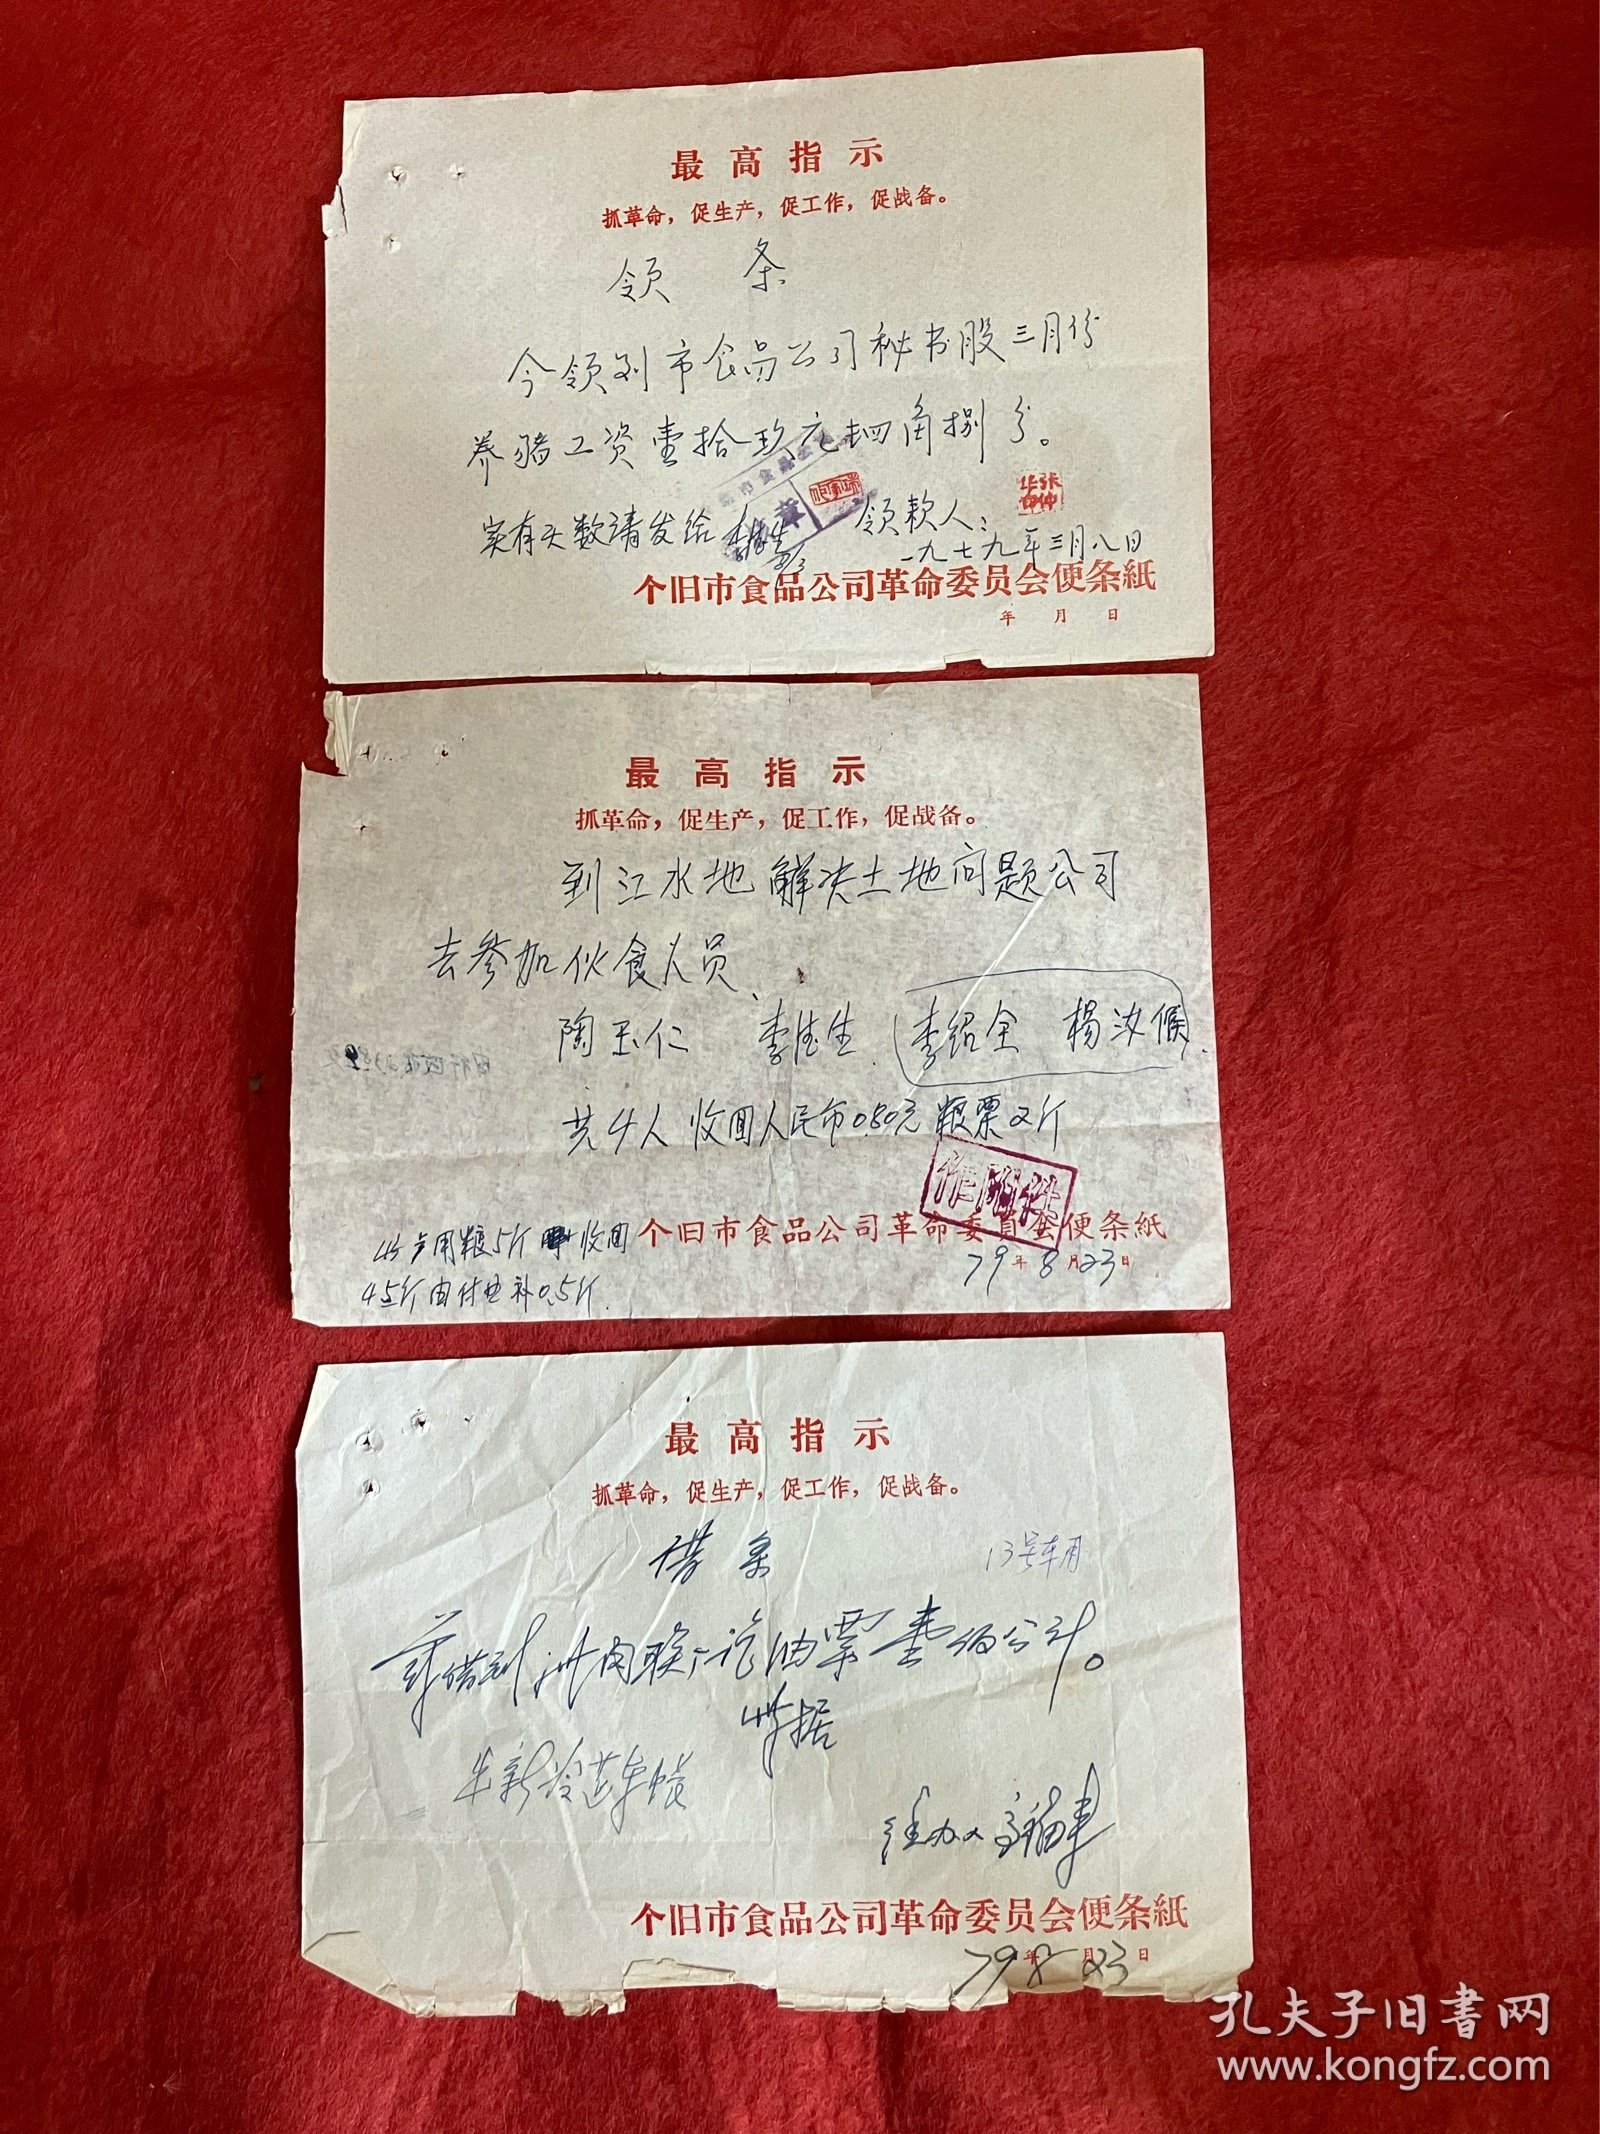 最高指示
抓革命，促生产，促工作，促战备。
领 条
今领到市食品公司秘书股三月份
养猪工资壹拾玖元肆角捌分。
实有天数请发给
领款人：
一九七九年三月八日
个旧市食品公司革命委员会便条紙
年 月 日
最高指示
抓革命，促生产，促工作，促战备。
到江水地解决土地问题公司
去参加伙食人员、
陶玉仁 李德生 李绍全 楊汝候
共4人 收回人民币0.80元 粮票2斤
用粮5斤 收回
4.5斤由付 补0.5斤
个旧市食品公司革命委员会便条紙
79年8月23日
最高指示
抓革命，促生产，促工作，促战备。
借条
13号车用
兹借到州肉联厂 油票壹佰公斤。
此据
经办人
个旧市食品公司革命委员会便条紙
79年8月23日
孔夫子旧书网
www.kongfz.com